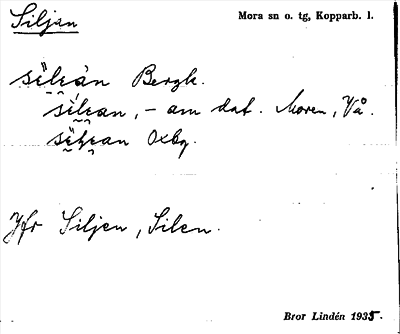 Siljan
Mora sn o. tg, Kopparb. l.
sèleàn Bergk.
sèlean, - am dat. Moren, Vå.
Oxbg.
Jfr Siljen, Silen.
Bror Lindén 1935.